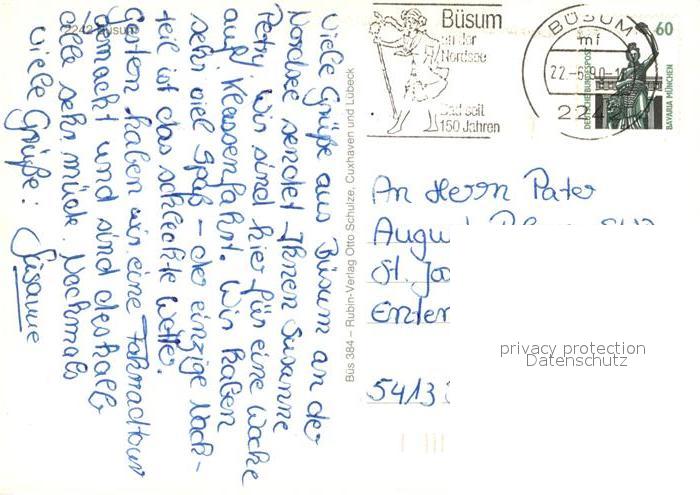 2242 Büsum
Viele Grüße aus Büsum an der
Nordsee sendet Ihnen Susanne
Petry. Wir sind hier für eine Woche
auf Klassenfahrt. Wir haben
sehr viel Spaß – der einzige Nach-
teil ist das schlechte Wetter.
Gestern haben wir eine Fahrradtour
gemacht und sind deshalb
alle sehr müde. Nochmals
viele Grüße: Susanne
Büs 384 – Rubin-Verlag Otto Schulze, Cuxhaven und Lübeck
Büsum
an der
Nordsee
Bad seit
150 Jahren
BÜSUM
mf
22.-6.90-
2242
60
DEUTSCHE BUNDESPOST
BAVARIA MÜNCHEN
An Herrn Pater
August
St. Jo
5413
privacy protection
Datenschutz